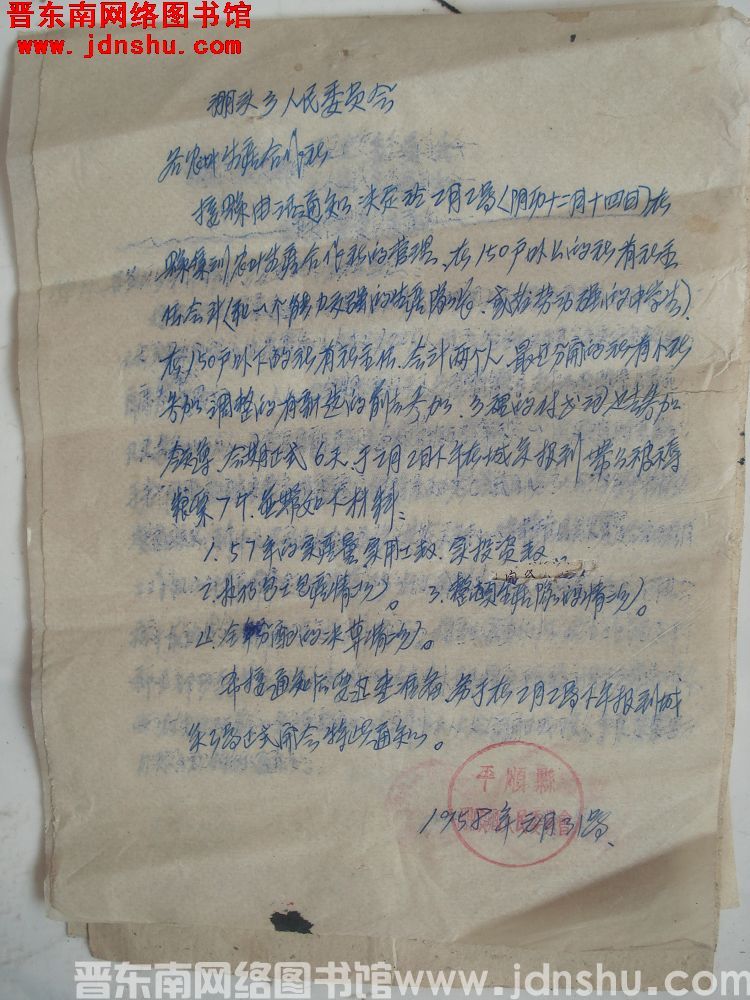 晋东南网络图书馆
www.jdnshu.com
朋头乡人民委员会
各农业生产合作社
接县电话通知 决定于2月2号(阴历十二月十四日)在
县集训农业生产合作社的管理、在150户以上的社有社主
任会计(和一个能力较强的生产队长、或 劳动强的中学生)
在150户以下的社有社主任、会计两个人、最近分开的社有小社
参加 调整的有新选的前去参加、乡里的付 也去参加
领导、会期正式6天、于二月2日下午在城关报到 带上被褥
粮票7斤、并带如下材料、
1.57年的实产量实用工数、实投资数、
2.执行包工包产情况。3.整顿生产队的情况。
4.全年分配的决算情况。
希接通知后 准备、务于在2月2号下午报到城
关3号正式开会 特此通知。
平顺县
1958年元月31号、
晋东南网络图书馆www.jdnshu.com